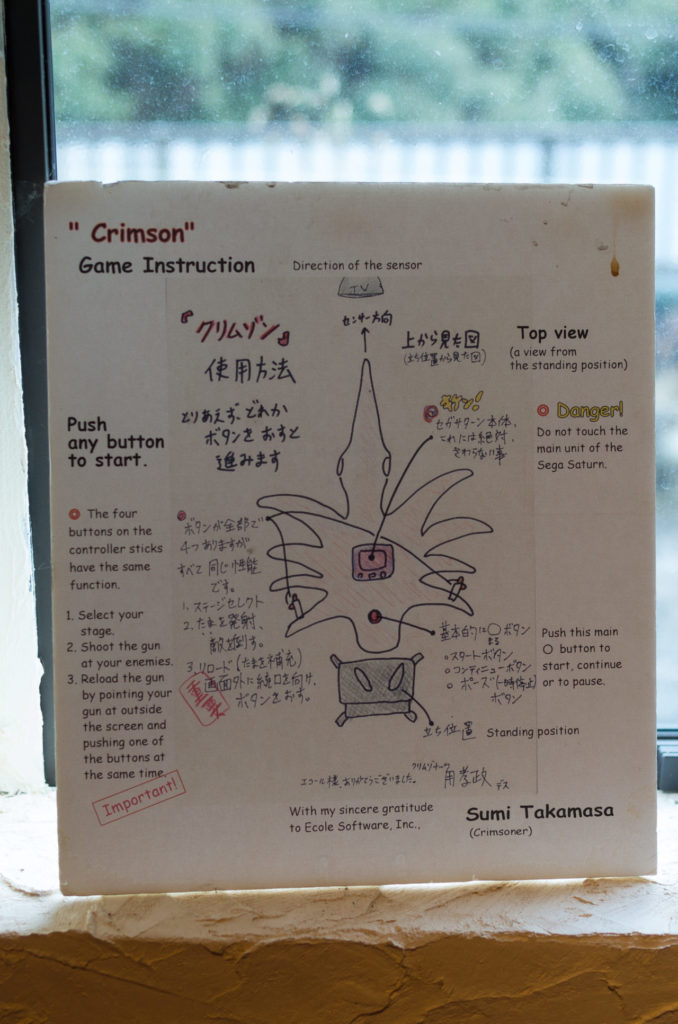 " Crimson"
Game Instruction
Direction of the sensor
TV
センサー方向
『クリムゾン』
使用方法
上から見た図
(立ち位置から見た図)
Top view
(a view from
the standing position)
Push
any button
to start.
とりあえず、どれか
ボタンをおすと
進みます
キケン!
セガサターン本体、
これには絶対、
さわらない事
Danger!
Do not touch the
main unit of the
Sega Saturn.
The four
buttons on the
controller sticks
have the same
function.
1. Select your
stage.
2. Shoot the gun
at your enemies.
3. Reload the gun
by pointing your
gun at outside
the screen and
pushing one of
the buttons at
the same time.
Important!
ボタンが全部で
4つありますが
すべて同じ性能
です。
1. ステージセレクト
2. たまを発射、
敵を倒す。
3. リロード(たまを補充)
画面外に銃口を向け、
ボタンをおす。
重要
基本的に○ボタン
まる
スタートボタン
コンティニューボタン
ポーズ(一時停止)
ボタン
Push this main
O button to
start, continue
or to pause.
立ち位置
Standing position
エコール様、ありがとうございました。
角孝政
デス
With my sincere gratitude
to Ecole Software, Inc.,
Sumi Takamasa
(Crimsoner)